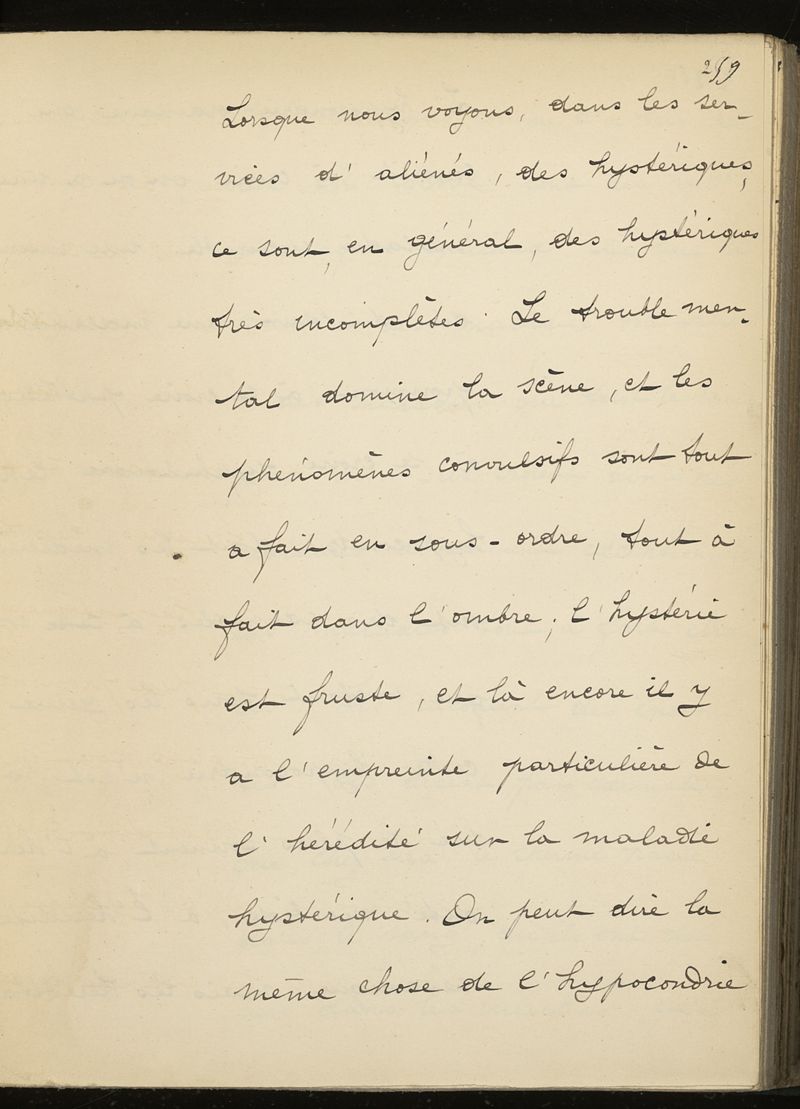 259
Lorsque nous voyons, dans les ser-
vices d'aliénés, des hystériques,
ce sont, en général, des hystériques
très incomplètes. Le trouble men-
tal domine la scène, et les
phénomènes convulsifs sont tout
a fait en sous-ordre, tout à
fait dans l'ombre; l'hystérie
est fruste, et là encore il y
a l'empreinte particulière de
l'hérédité sur la maladie
hystérique. On peut dire la
même chose de l'hypocondrie